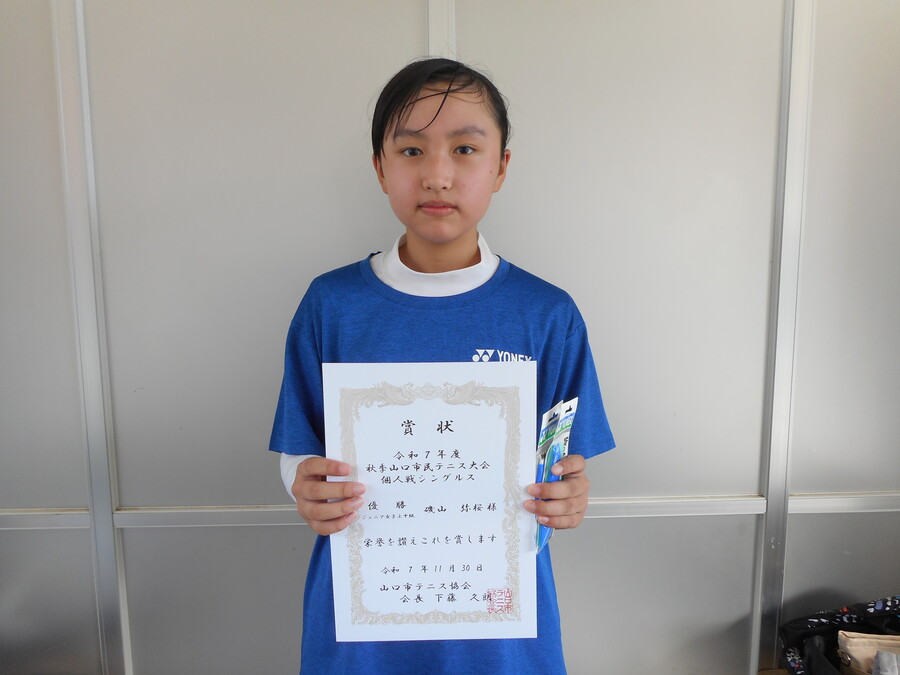 YONEX
賞状
令和7年度
秋季山口市民テニス大会
個人戦シングルス
優勝 磯山 弥桜様
栄誉を讃えこれを賞します
令和 7 年 11 月 30 日
山口市テニス協会
会長 下藤 久